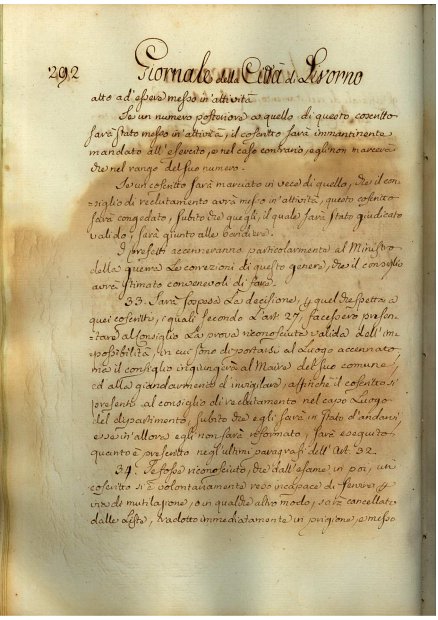 292 Giornale della Città di Livorno
atto ad'essere messo in'attività
Se un numero posteriore a quello di questo coscritto
sarà stato messo in'attività, il coscritto sarà immantinente
mandato all'esercito, e nel caso contrario, egli non marcerà
che nel rango del suo numero.
Se un coscritto sarà marciato in vece di quello, che il con-
siglio di reclutamento avrà messo in'attività, questo coscritto
sarà congedato, subito che quegli, il quale sarà stato giudicato
valido, sarà giunto alle bandiere.
I prefetti accenneranno particolarmente al Ministro
della guerra le correzioni di questo genere, che il consiglio
avrà stimato convenevoli di fare.
33. Sarà sospesa la decisione, quel che spetta a
quei coscritti, i quali secondo l'art. 27, facessero presen-
tare al consiglio la prova riconosciuta valida dell'im-
possibilità, in cui sono di portarsi al luogo accennato,
ma il consiglio ingiungerà al Maire del suo comune,
ed alla giandarmeria d'invigilare, affinchè il coscritto si
presenti al consiglio di reclutamento nel capo luogo
del dipartimento, subito che egli sarà in stato d'andarvi,
e se in'allora egli non sarà riformato, sarà eseguito
quanto è prescritto negli ultimi paragrafi dell'Art. 32.
34. Se fosse riconosciuto, che dall'esame in poi, un
coscritto si è volontariamente reso incapace di servire,
via di mutilazione, o in qualche altro modo, sarà cancellato
dalle liste, tradotto immediatamente in prigione, e messo